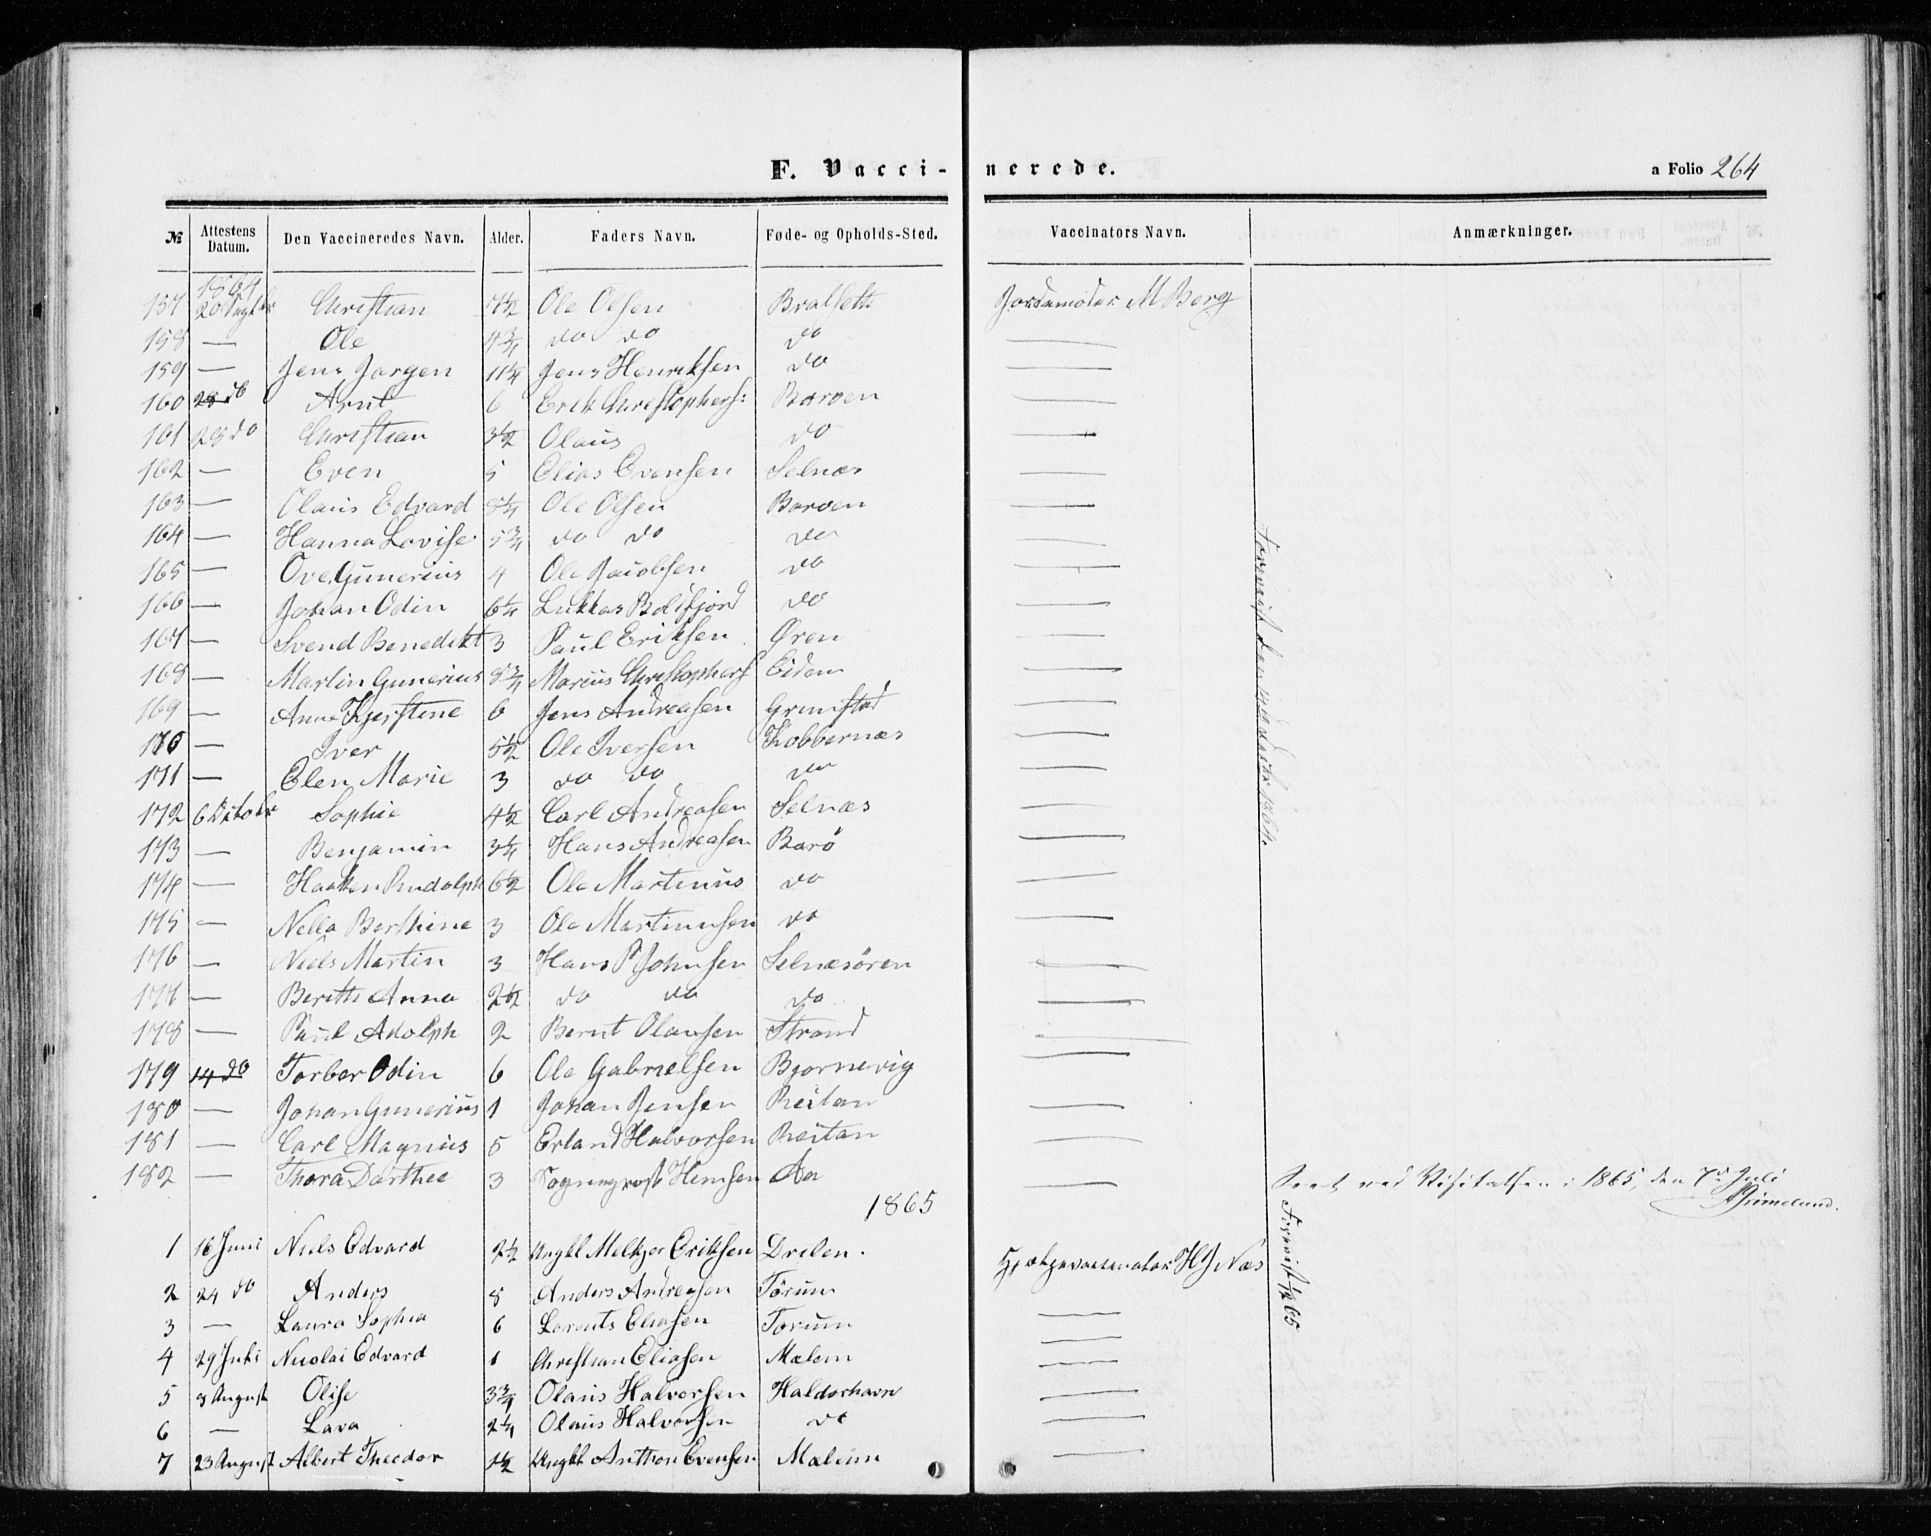 F. Vacci- nerede. a Folio 264
№ Attestens Datum. Den Vaccineredes Navn. Alder. Faders Navn. Føde- og Opholds-Sted. Vaccinators Navn. Anmærkninger.
1864
157 20 Christian 7½ Ole Olsen Jordemoder M Berg
158 — Ole 4¾ do do do —
159 — Jens Jørgen 11¼ Jens Henriksen do —
160 Arnt 6 Erik Christophers: Barøen —
161 28 do Christian 3½ Olaus do —
162 — Even 5 Elias Evensen Selnæs —
163 — Olaus Edvard 8¼ Ole Olsen Barøen —
164 — Hanna Lovise 5¾ do do do —
165 — Ove Gunerius 4 Ole Jacobsen do —
166 — Johan Odin 6¼ Lukkas do —
167 — Svend Benedikt 3 Paul Eriksen Øren —
168 — Martin Gunerius 8¾ Marius Christophers Eidem —
169 — Anne Kjerstine 6 Jens Andreasen Grunstad —
170 — Iver 5½ Ole Iversen Kobbernæs —
171 — Elen Marie 3 do do do —
172 6 Octobr Sophie 4½ Carl Andreasen Selnæs —
173 — Benjamin 3¼ Hans Andreasen Barø —
174 — Haaken Rudolph 6½ Ole Martinus do —
175 — Nella Berthine 3 Ole Martinusen do —
176 — Niels Martin 3 Hans P Johnsen Selnæsören —
177 — Bereth Anna 2½ do do do —
178 — Paul Adolph 2 Bernt Olausen Strand —
179 14 do Torber Odin 6 Ole Gabrielsen Bjørnevig —
180 — Johan Gunerius 1 Johan Jensen Reitan —
181 — Carl Magnus 5 Erland Halvorsen Reitan —
182 — Thora Dorthee 3 Sogneprest Hemsen Aa —
Seet ved Visitatsen i 1865, den 7de Juli
Grimelund.
1865
1 16 Juni Niels Edvard 2½ Ungkl Melkjor Eriksen Drelen. Hjælpevaccinator H J Næs
2 24 do Anders 8 Anders Andreasen Tørum —
3 — Laura Sophia 6 Lorents Eliasen Torum —
4 29 Juli Nicolai Edvard 1 Christian Eliasen Mælem —
5 8 August Olise 3¾ Olaus Halvorsen Haldorhavn —
6 — Lava 2¼ Olaus Halvorsen do —
7 23 August Albert Theodor 1½ Ungkl Anthon Evensen Mælem —